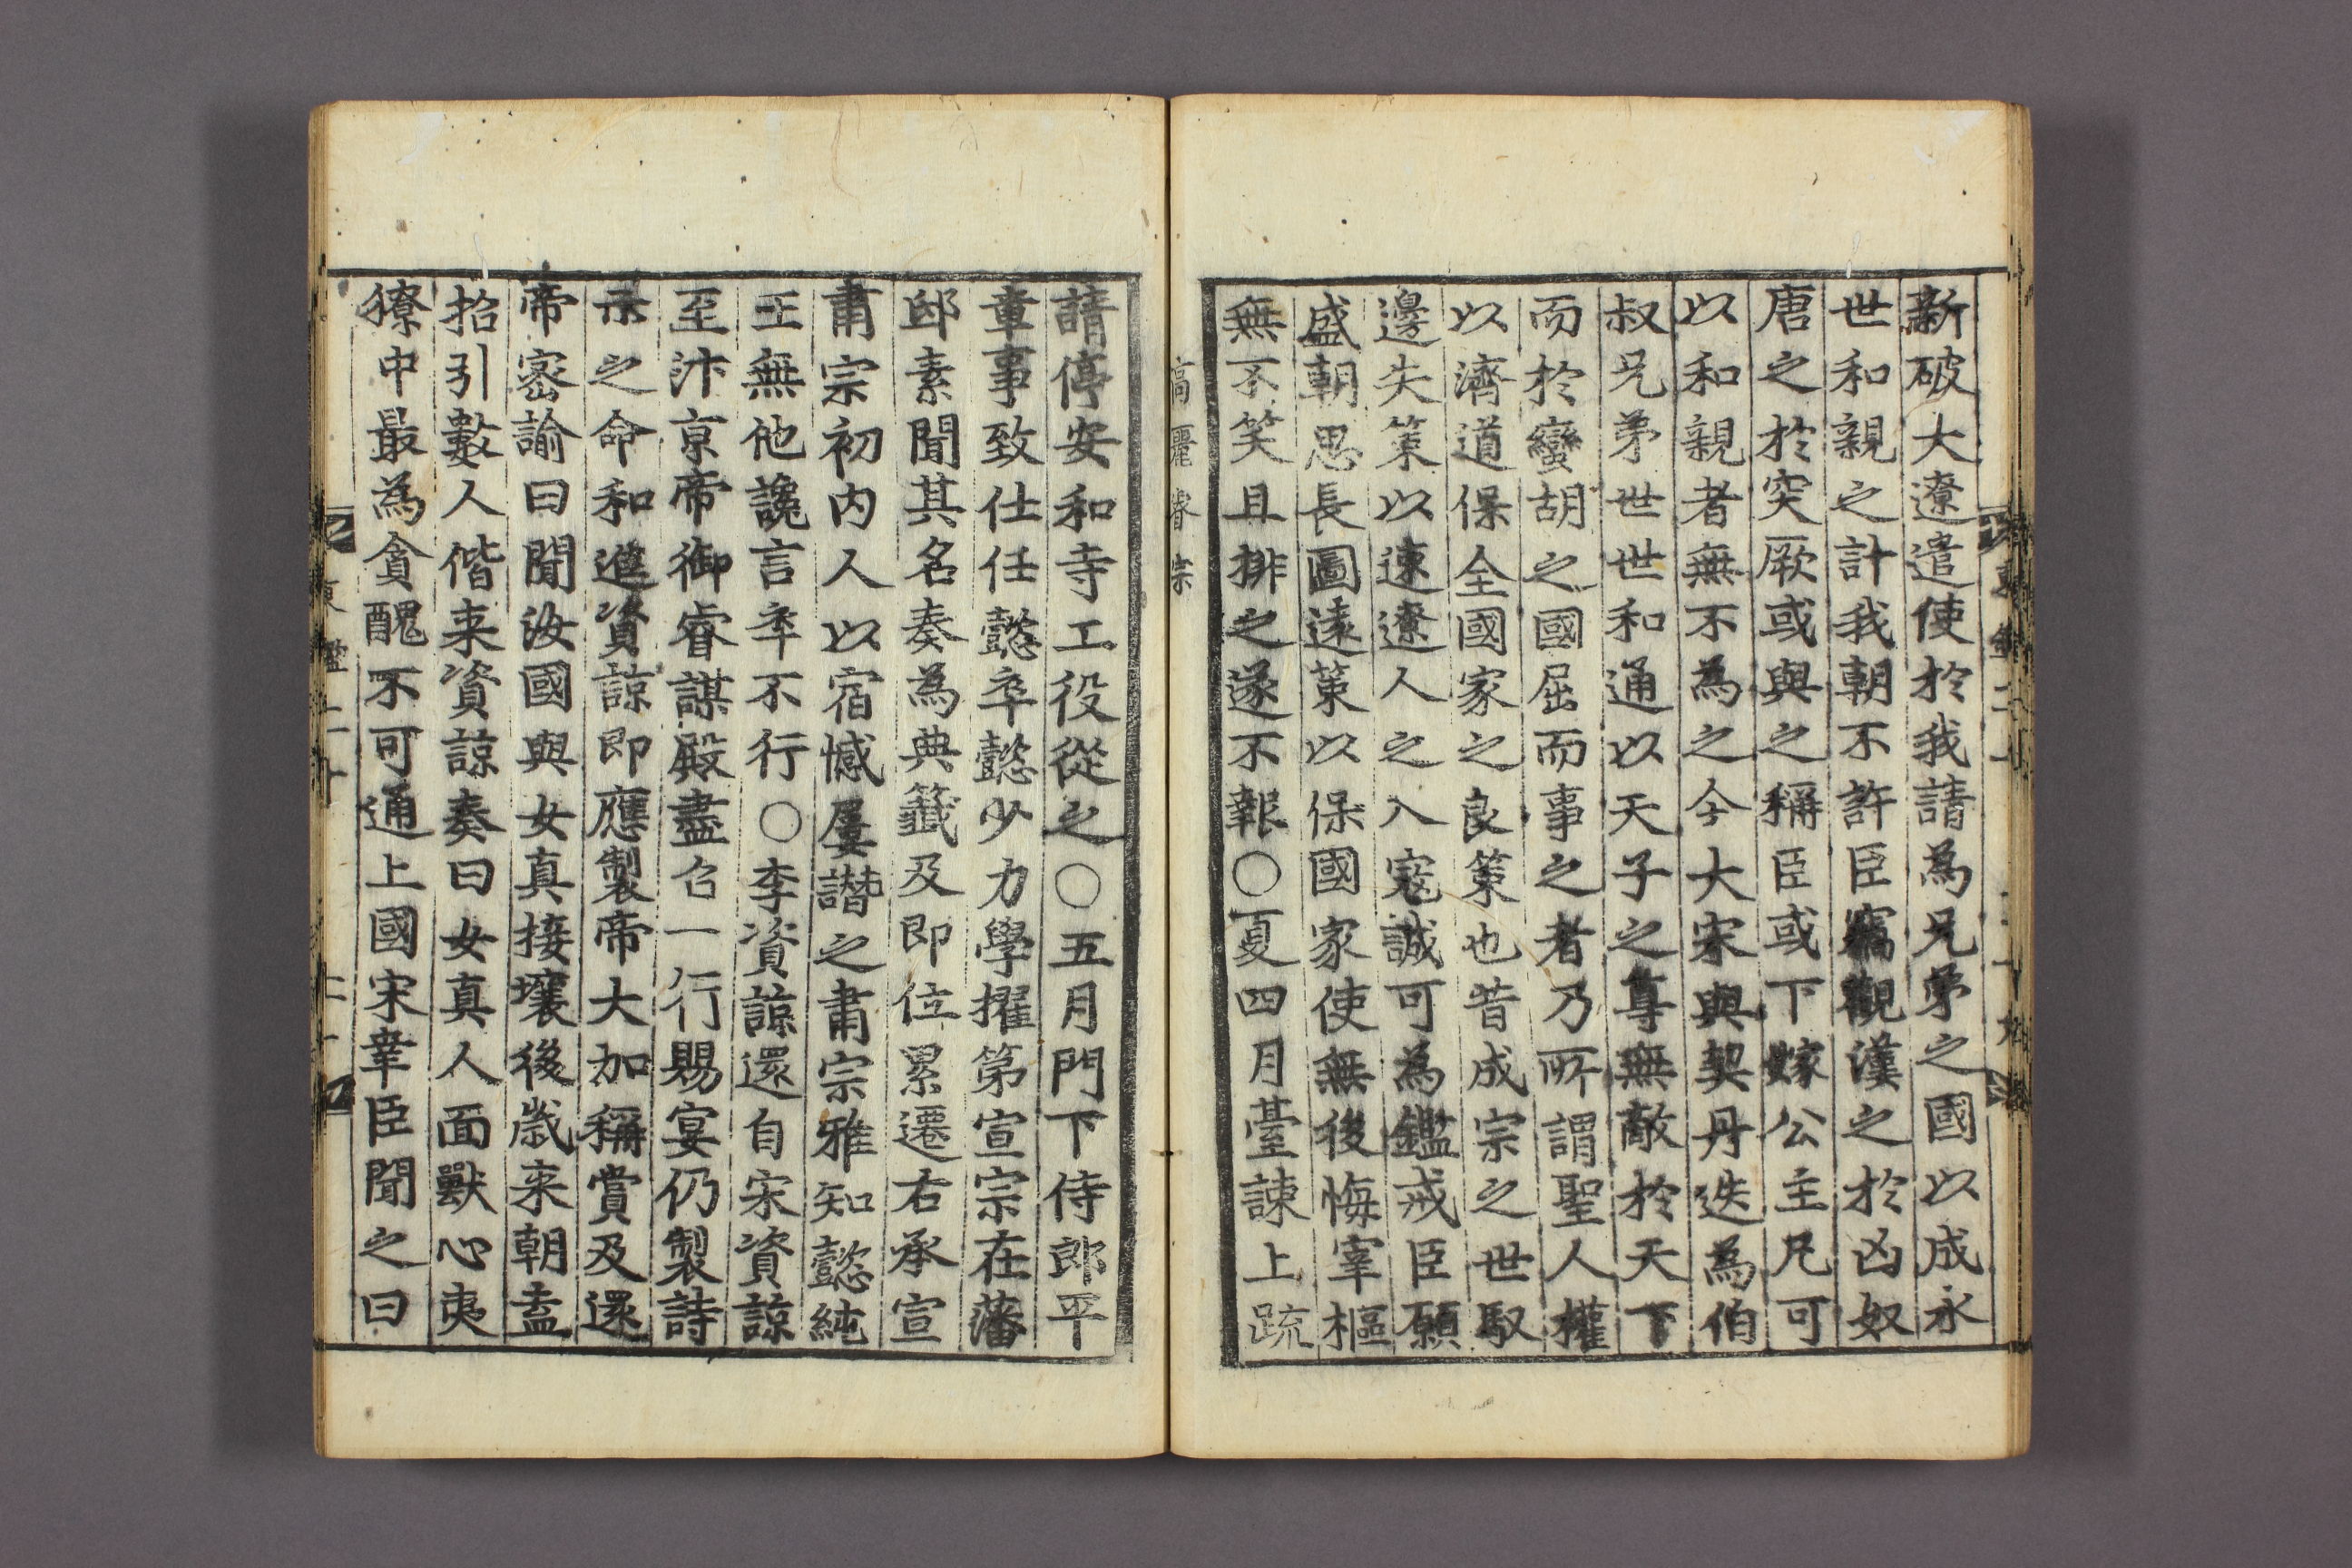 新破大遼遣使於我請為兄弟之國以成永
世和親之計我朝不許臣竊觀漢之於凶奴
唐之於突厥或與之稱臣或下嫁公主凡可
以和親者無不為之今大宋與契丹迭為伯
叔兄弟世世和通以天子之尊無敵於天下
而於蠻胡之國屈而事之者乃所謂聖人權
以濟道保全國家之良策也昔成宗之世馭
邊失策以速遼人之入寇誠可為鑑戒臣願
盛朝思長圖遠策以保國家使無後悔宰樞
無不笑且排之遂不報○夏四月臺諫上疏
高麗睿宗
請停安和寺工役從之○五月門下侍郎平
章事致仕任懿卒懿少力學擢第宣宗在藩
邸素聞其名奏為典籤及即位累遷右承宣
肅宗初內人以宿憾屢譖之肅宗雅知懿純
正無他讒言卒不行○李資諒還自宋資諒
至汴京帝御睿謀殿盡召一行賜宴仍製詩
示之命和進資諒即應製帝大加稱賞及還
帝密諭曰聞汝國與女真接壤後歲來朝盍
招引數人偕来資諒奏曰女真人面獸心夷
獠中最為貪醜不可通上國宋幸臣聞之曰
東鑑二十